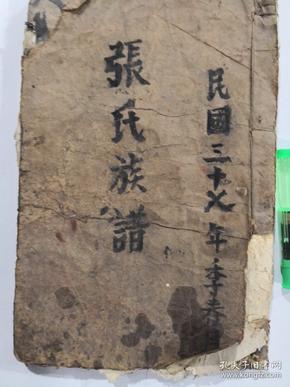 民國三十七年季春
張氏族譜
孔夫子旧书网